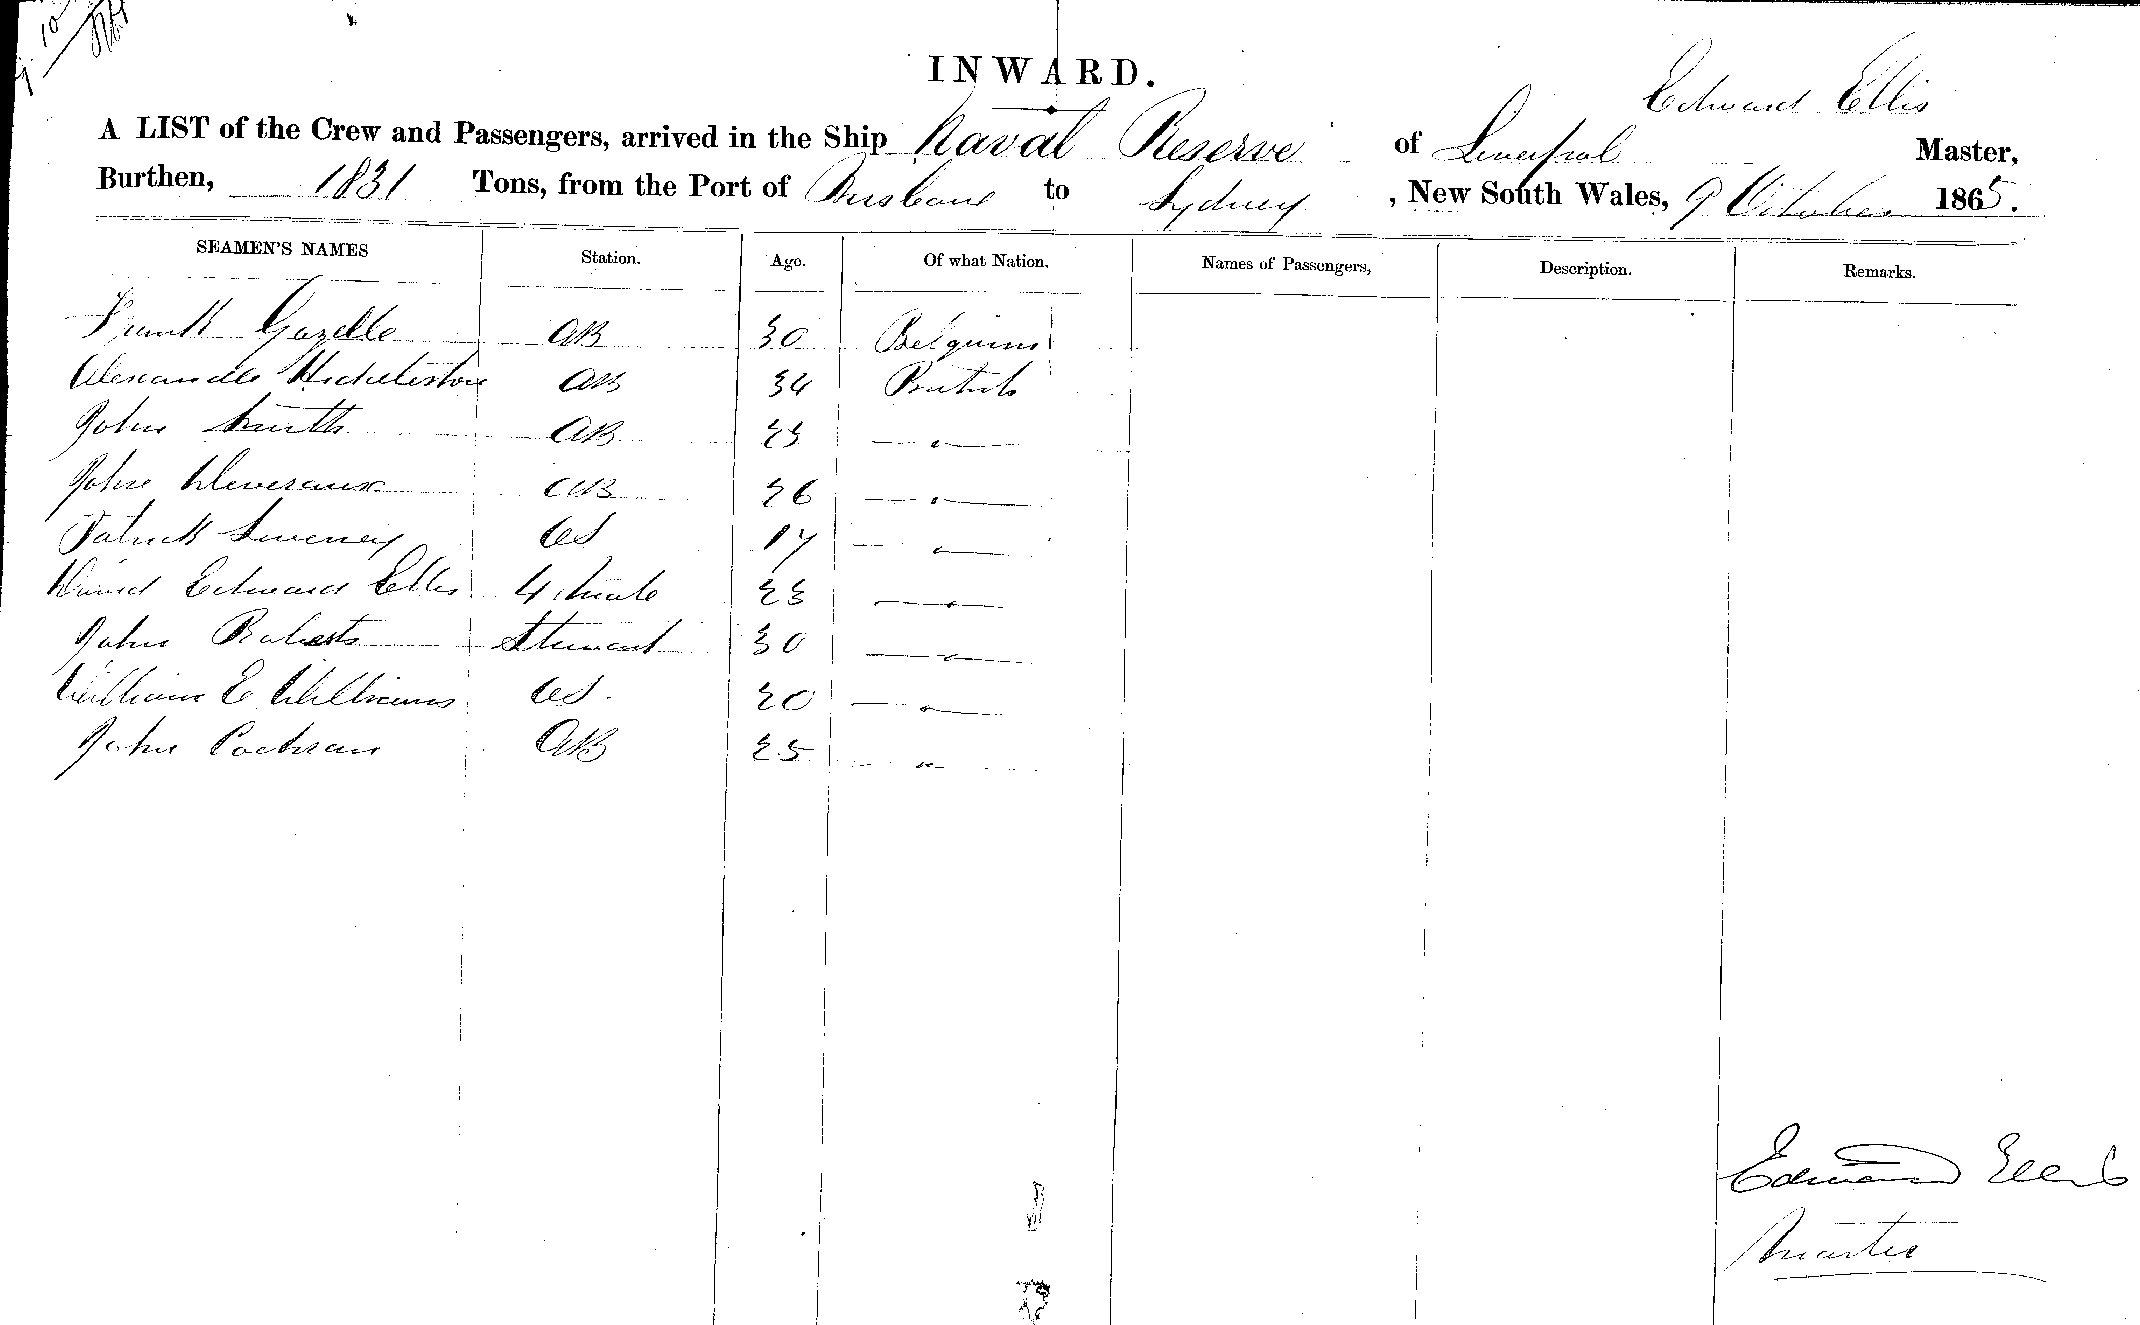 INWARD.
Edward Ellis
A LIST of the Crew and Passengers, arrived in the Ship Naval Reserve of Liverpool Master,
Burthen, 1831 Tons, from the Port of Brisbane to Sydney, New South Wales, 9 October 1865.
SEAMEN'S NAMES Station. Age. Of what Nation. Names of Passengers, Description. Remarks.
Frank Gazelle AB 30 Belguim
Alexander AB 34 British
John Smith AB 23 〃
John Deveraux AB 26 〃
Patrick Sweeney OS 17 〃
David Edward Ellis 4 Mate 23 〃
John Roberts Steward 30 〃
William E Williams OS. 20 〃
John Cochran AB 25 〃
Edward Ellis
Master